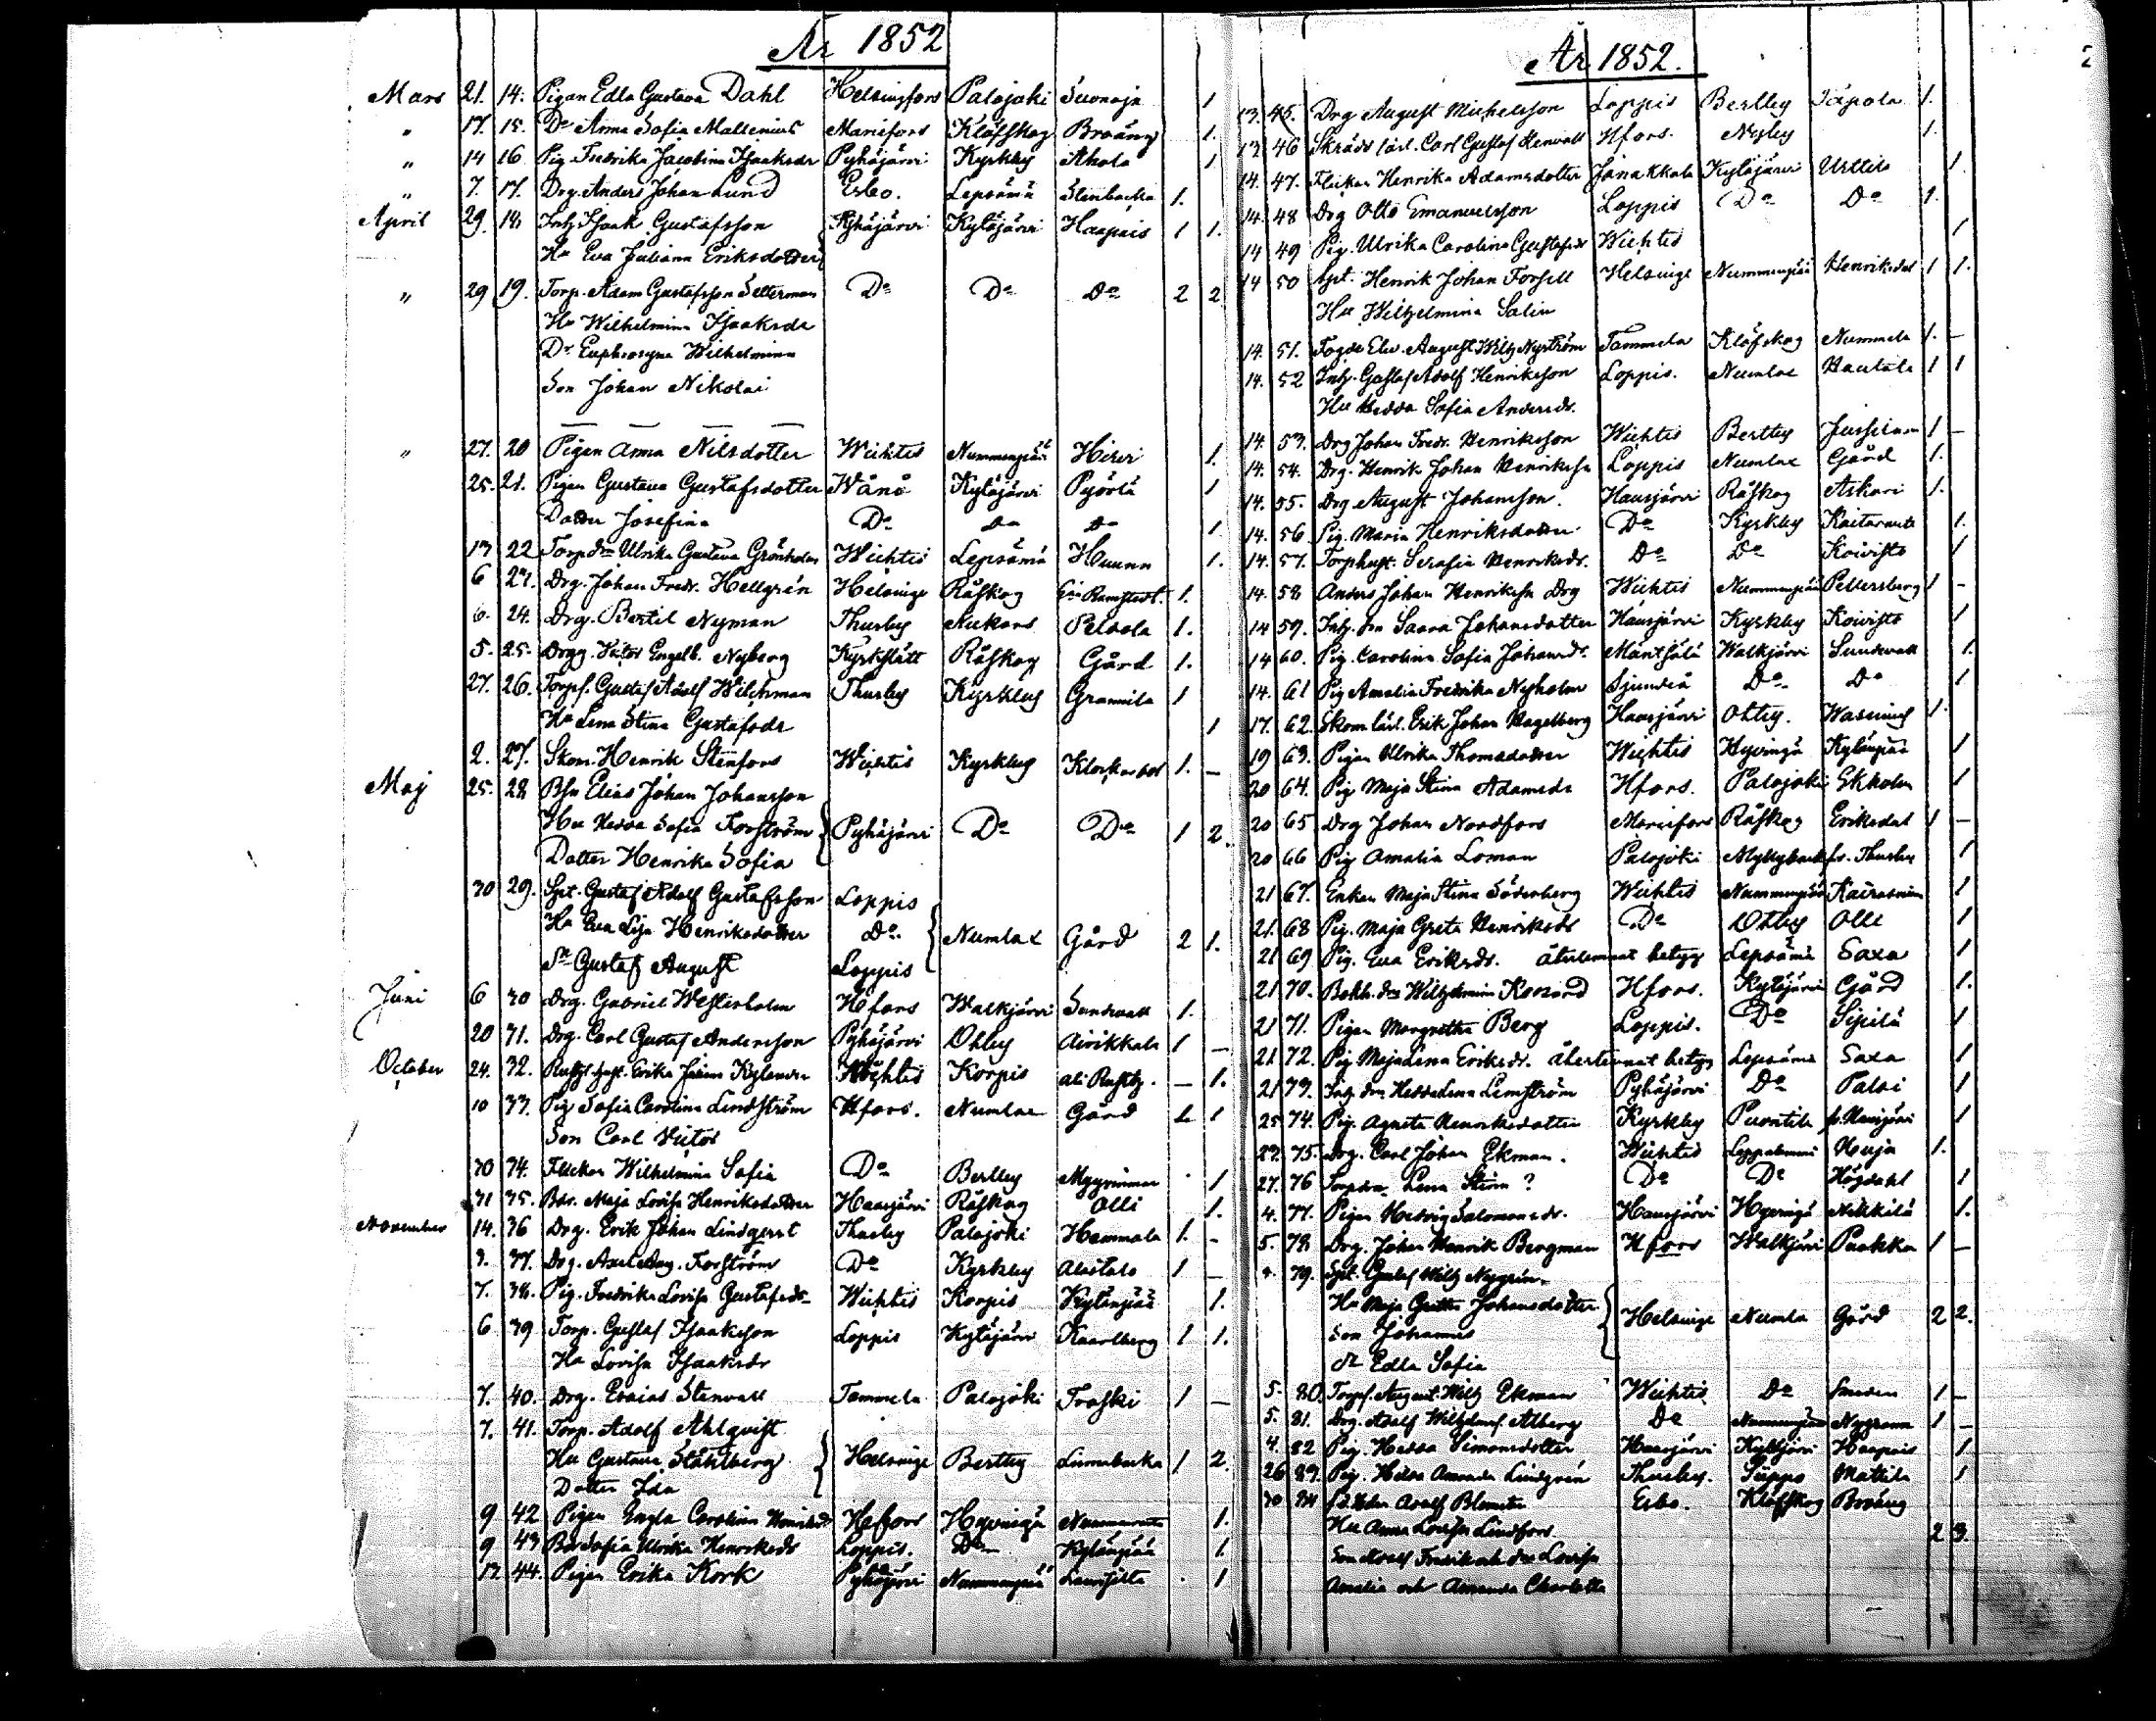 År 1852
Mars 21. 14. Pigan Edla Gustava Dahl Helsingfors Palojoki Suonoja 1
" 17. 15. Do Anna Sofia Mallenius Mariefors Klöfskog Broäng 1.
" 14 16 Pig. Fredrika Jacobina Isaaksdr Pyhäjärvi Kyrkby Ahola 1
" 7. 17. Drg. Anders Johan Lund Esbo. Lepsämä Stenbacka 1.
April 29. 18 Inh. Isaak Gustafsson Pyhäjärvi Kytäjärvi Haapais 1 1.
Hu Eva Juliana Eriksdotter
" 29 19. Torp. Adam Gustafsson Setterman Do Do Do 2 2
Hu Wilhelmina Isaaksdr
Dr Euphrosyne Wilhelmina
Son Johan Nikolai
" 27. 20 Pigan Anna Nilsdotter Wichtis Nummenpää Hirvi 1.
25. 21. Pigan Gustava Gustafsdotter Wånå Kytäjärvi Pyörlä 1
Dotter Josefina Do Do Do 1.
13 22 Torpdr Ulrika Gustava Grönholm Wichtis Lepsämä Hunnu 1.
6 23. Drg. Johan Fredr. Hellgrén Helsinge Råskog Ramstedt. 1.
6. 24. Drg. Bertil Nyman Thusby Nukars Peltola 1.
5. 25. Drgg. Victor Engelb. Nyberg Kyrkslätt Råskog Gård 1.
27. 26. Torps. Gustaf Adolf Wilchman Thusby Kyrkby Grannila 1
Hu Lena Stina Gustafsdr 1
2. 27. Skom. Henrik Stenfors Wichtis Kyrkby Klockarbol 1. –
Maj 25. 28 Bsn Elias Johan Johansson
Hu Hedda Sofia Forsström Pyhäjärvi Do Do 1 2.
Dotter Henrika Sofia
30 29. Spt. Gustaf Adolf Gustafsson Loppis
Hu Eva Lisa Henriksdotter Do Numlax Gård 2 1.
Sn Gustaf August Loppis
Juni 6 30 Drg. Gabriel Westerholm Hfors Walkjärvi Sundvall 1.
20 31. Drg. Carl Gustaf Andersson Pyhäjärvi Ohby Airikkala 1 –
October 24. 32. Erika Kylander Wichtis Korpis – 1.
10 33. Pig Sofia Carolina Lindström Hfors. Numlax Gård 1 1
Son Carl Victor
30 34. Flickan Wilhelmina Sofia Do Bertby Myyrinmaa 1
31 35. Bdr. Maja Lovisa Henriksdotter Hausjärvi Råskog Olli 1.
November 14. 36 Drg. Erik Johan Lindqvist Thusby Palojoki Hammala 1. –
3. 37. Drg. Axel Aug. Forsström Do Kyrkby Alastalo 1 –
7. 38. Pig. Fredrika Lovisa Gustafsdr Wichtis Korpis Kytänpää 1.
6 39 Torp. Gustaf Isaaksson Loppis Kytäjärvi Kaarlberg 1 1.
Hu Lovisa Isaaksdr
7. 40. Drg. Esaias Stenvall Tammela Palojoki Troski 1 –
7. 41. Torp. Adolf Ahlqvist
Hu Gustava Ståhlberg Helsinge Bertby Linnabacka 1 2.
Dotter Ida
9 42 Pigan Engla Carolina Henriksdr Hfors Hyvinge 1.
9 43 Bdr Sofia Ulrika Henriksdr Loppis. Do Kytänpää 1.
13. 44. Pigan Erika Kork Pyhäjärvi Nummenpää Lansisilta 1
År 1852.
13. 45. Drg August Michelsson Loppis Bertby Täpola 1.
13. 46 Skrädd lärl. Carl Gustaf Stenvall Hfors. Nyby 1.
14. 47. Flickan Henrika Adamsdotter Janakkala Kytäjärvi Urttila 1
14. 48 Drg Otto Emanuelsson Loppis Do Do 1.
14 49 Pig. Ulrika Carolina Gustafsdr Wichtis 1
14 50 Spt. Henrik Johan Forsell Helsinge Nummenpää Henriksdal 1 1.
Hu Wilhelmina Salin
14. 51. Fogde Elev. August Wilh Nyström Tammela Klöfskog Nummela 1. –
14. 52 Inh. Gustaf Adolf Henriksson Loppis. Numlax Hautala 1 1
Hu Hedda Sofia Andersdr.
14. 53. Drg Johan Fredr. Henriksson Wichtis Bertby Jussila 1 –
14. 54. Drg. Henrik Johan Henriksson Loppis Numlax Gård 1.
14. 55. Drg August Johansson. Hausjärvi Råskog Askari 1.
14. 56 Pig. Maria Henriksdotter Do Kyrkby 1.
14. 57. Torphust. Serafia Henriksdr. Do Do Koivisto 1
14. 58 Anders Johan Henrikssn Drg Wichtis Nummenpää Pettersberg 1 –
14 59. Inh. dr Saara Johansdotter Hausjärvi Kyrkby Koivisto 1
14 60. Pig. Carolina Sofia Johansdr. Mäntsälä Walkjärvi Sundvall 1.
14. 61 Pig Amalia Fredrika Nyholm Sjundeå Do Do 1
17. 62. Skom. lärl. Erik Johan Hagelberg Hausjärvi Ohby. Wasenius 1.
19 63. Pigan Ulrika Thomasdotter Wichtis Hyvingä Kytänpää 1
20 64. Pig Maja Stina Adamsdr Hfors. Palojoki Ekholm 1
20 65 Drg Johan Nordfors Mariefors Råskog Eriksdal 1 –
20 66 Pig Amalia Loman Palojoki Myllybacka fr. Thusby 1
21 67. Enkan Maja Stina Söderberg Wichtis Nummenpää 1
21. 68 Pig. Maja Greta Henriksdr Do Ohby Olli 1
21 69 Pig. Eva Eriksdr. återlemnat betyg Lepsämä Saxa 1
21 70. Bokh. dr Wilhelmina Hfors. Kytäjärvi Gård 1.
21 71. Pigan Margretha Berg Loppis. Do Sipilä 1
21 72. Pig Maja Lena Eriksdr. återlemnat betyg Lepsämä Saxa 1
21 73. Inh. dr Hedda Lena Lemström Pyhäjärvi Do Taloi 1
25 74. Pig. Agneta Henriksdotter Kyrkby Puontila 1
27. 75. Drg. Carl Johan Ekman. Wichtis Leppälammi Huja 1.
27. 76 Torpdra Lena Stina ? Do Do Högdahl 1
4. 77. Pigan Hedvig Salomonsdr. Hausjärvi Hyvingä Nikkilä 1.
5. 78 Drg. Johan Henrik Bergman Hfors Walkjärvi Puokka 1 –
79. Spt. Gustaf Wilh Nygrén.
Hu Maja Gretta Johansdotter Helsinge Numla Gård 2 2.
Son Johannes
Dr Edla Sofia
5. 80. Torps. August Wilh Ekman Wichtis Do 1 –
5. 81. Drg. Adolf Wilhelmss Alberg Do Nummenpää 1 –
4. 82 Pig. Hedda Simonsdotter Hausjärvi Kytäjärvi Haapais 1
26 83. Pig. Hilda Amanda Lindgrén Thusby. Siippo Mattila 1
30 84 Adolf Esbo. Klöfskog Broäng
Hu Anna Lovisa Lindfors. 2 3.
Son Adolf Fredrik och dr Lovisa
Amalia och Amanda Charlotta